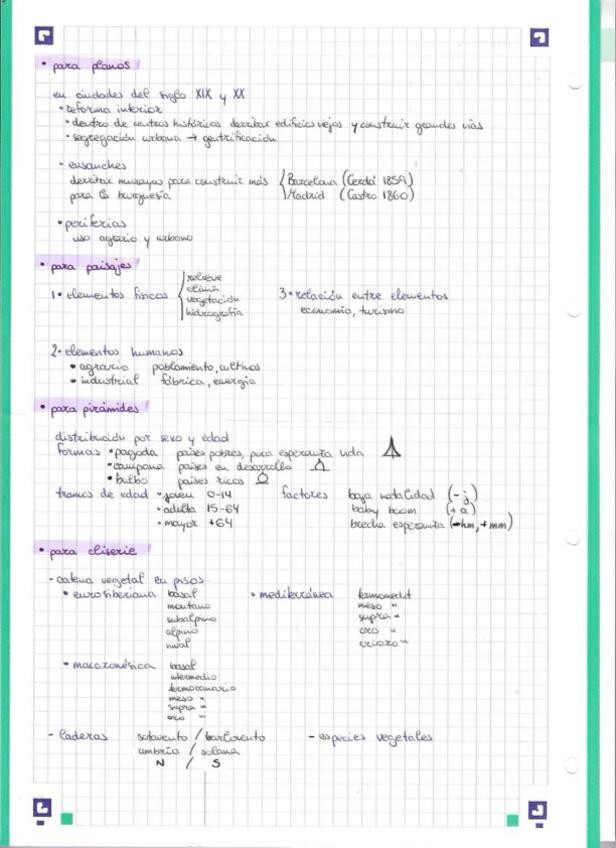 • para planos
en ciudades del siglo XIX y XX
• reforma interior
• dentro de centros históricos derribar edificios viejos y construir grandes vías
• segregación urbana → gentrificación
• ensanches
derribar murallas para construir más
para la burguesía
Barcelona (Cerdá 1859)
Madrid (Castro 1860)
• periferias
uso agrario y urbano
• para paisajes
1• elementos físicos
relieve
clima
vegetación
hidrografía
3• relación entre elementos
economía, turismo
2• elementos humanos
• agrario poblamiento, cultivos
• industrial fábrica, energía
• para pirámides
distribución por sexo y edad
formas • pagoda países pobres, poca esperanza vida
• campana países en desarrollo
• bulbo países ricos
tramos de edad • joven 0-14
• adulta 15-64
• mayor +64
factores baja natalidad (-j)
baby boom (+a)
brecha esperanza (-hm, +mm)
• para cliserie
- catena vegetal en pisos
• eurosiberiana basal
montano
subalpino
alpino
nival
• mediterránea termomedit
meso "
supra "
oro "
crioro "
• macaronésica basal
intermedio
termocanario
meso "
supra "
oro "
- laderas sotavento / barlovento
umbría / solana
N / S
- especies vegetales